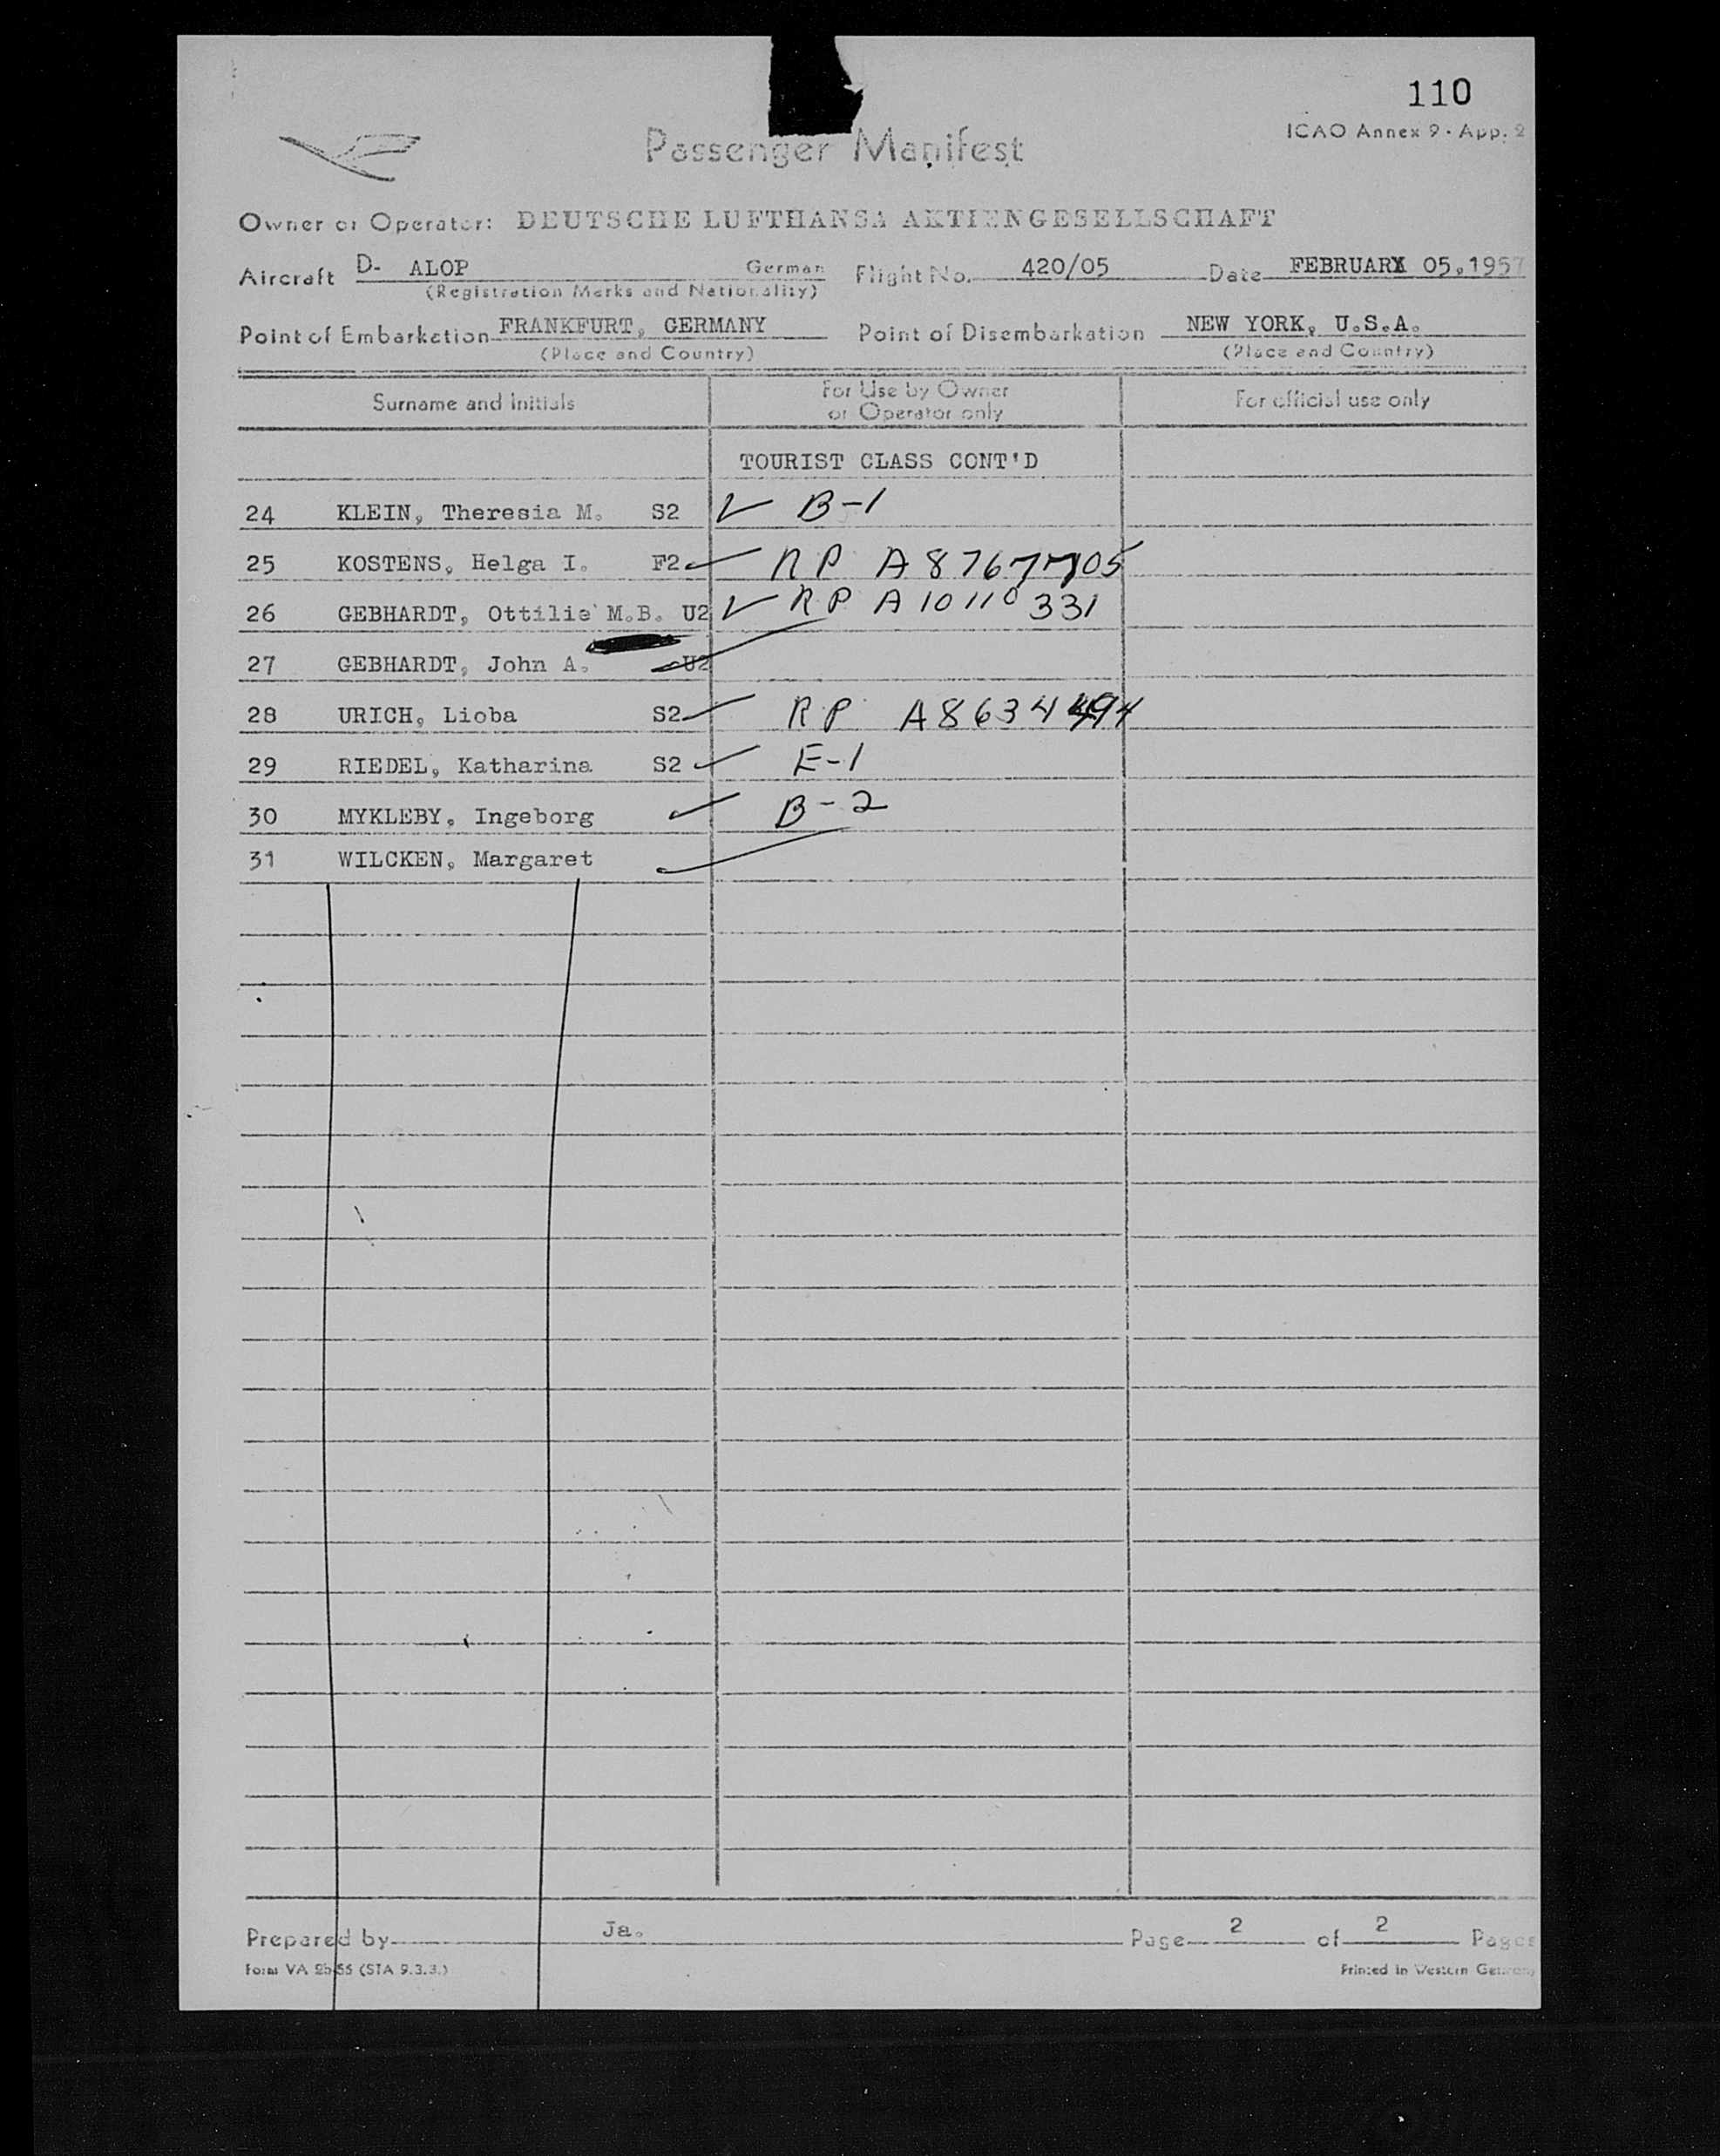 110
ICAO Annex 9 · App. 2
Passenger Manifest
Owner or Operator: DEUTSCHE LUFTHANSA AKTIENGESELLSCHAFT
Aircraft D- ALOP German Flight No. 420/05 Date FEBRUARY 05,1957
(Registration Marks and Nationality)
Point of Embarkation FRANKFURT, GERMANY Point of Disembarkation NEW YORK, U.S.A.
(Place and Country) (Place and Country)
Surname and Initials For Use by Owner or Operator only For official use only
TOURIST CLASS CONT'D
24 KLEIN, Theresia M. S2 ✓ B-1
25 KOSTENS, Helga I. F2 ✓ RP A8767705
26 GEBHARDT, Ottilie M.B. U2 ✓ RP A10110331
27 GEBHARDT, John A. U2
28 URICH, Lioba S2 ✓ RP A8634494
29 RIEDEL, Katharina S2 ✓ E-1
30 MYKLEBY, Ingeborg ✓ B-2
31 WILCKEN, Margaret ✓
Prepared by Ja. Page 2 of 2 Pages
Form VA 2b-55 (STA 9.3.3.) Printed in Western Germany